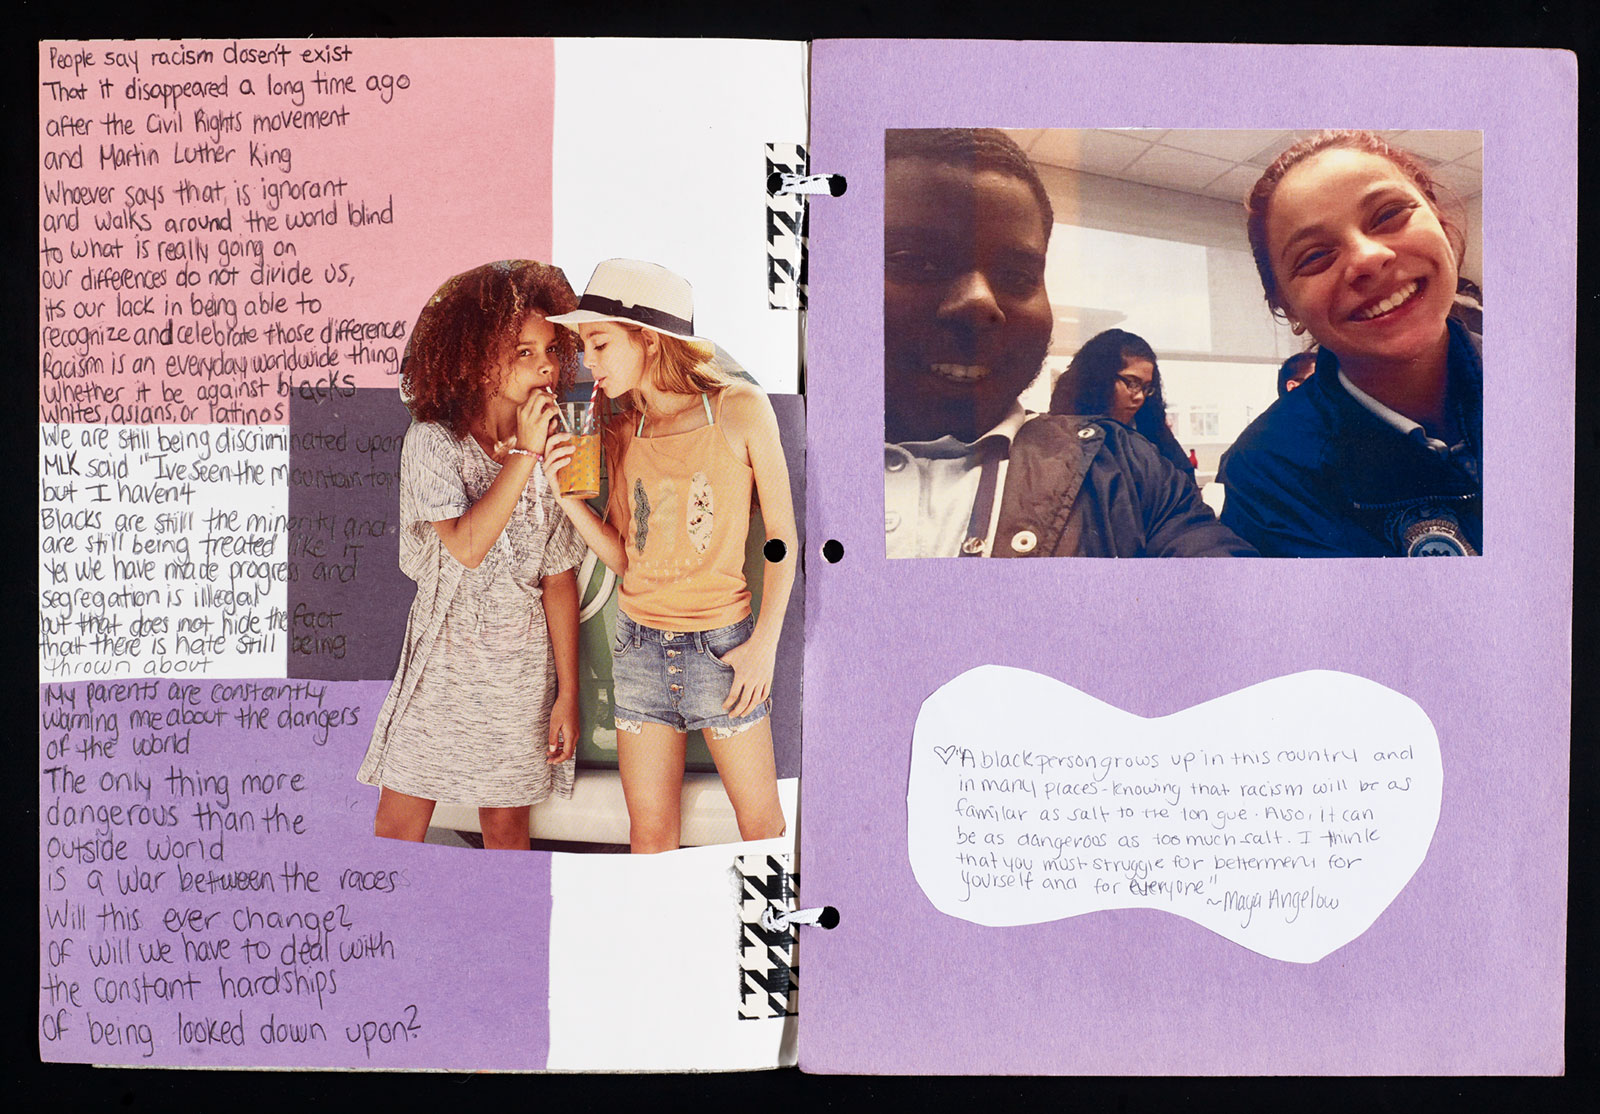 People say racism dosen't exist
That it disappeared a long time ago
after the Civil Rights movement
and Martin Luther King
Whoever says that, is ignorant
and walks around the world blind
to what is really going on
our differences do not divide us,
its our lack in being able to
recognize and celebrate those differences
Racism is an everyday worldwide thing
whether it be against blacks
whites, asians, or lattinos
We are still being discriminated upon
MLK said "Ive seen the mountain top"
but I haven't
Blacks are still the minority and
are still being treated like it
Yes we have made progress and
segregation is illegal
but that does not hide the fact
that there is hate still being
thrown about
My parents are constantly
warning me about the dangers
of the world
The only thing more
dangerous than the
outside world
is a war between the races
Will this ever change?
Of will we have to deal with
the constant hardships
Of being looked down upon?
♡"A black person grows up in this country and
in many places-knowing that racism will be as
familar as salt to the tongue. Also, it can
be as dangeroos as too much salt. I think
that you must struggle for betterment for
yourself and for everyone"
~Maya Angelow